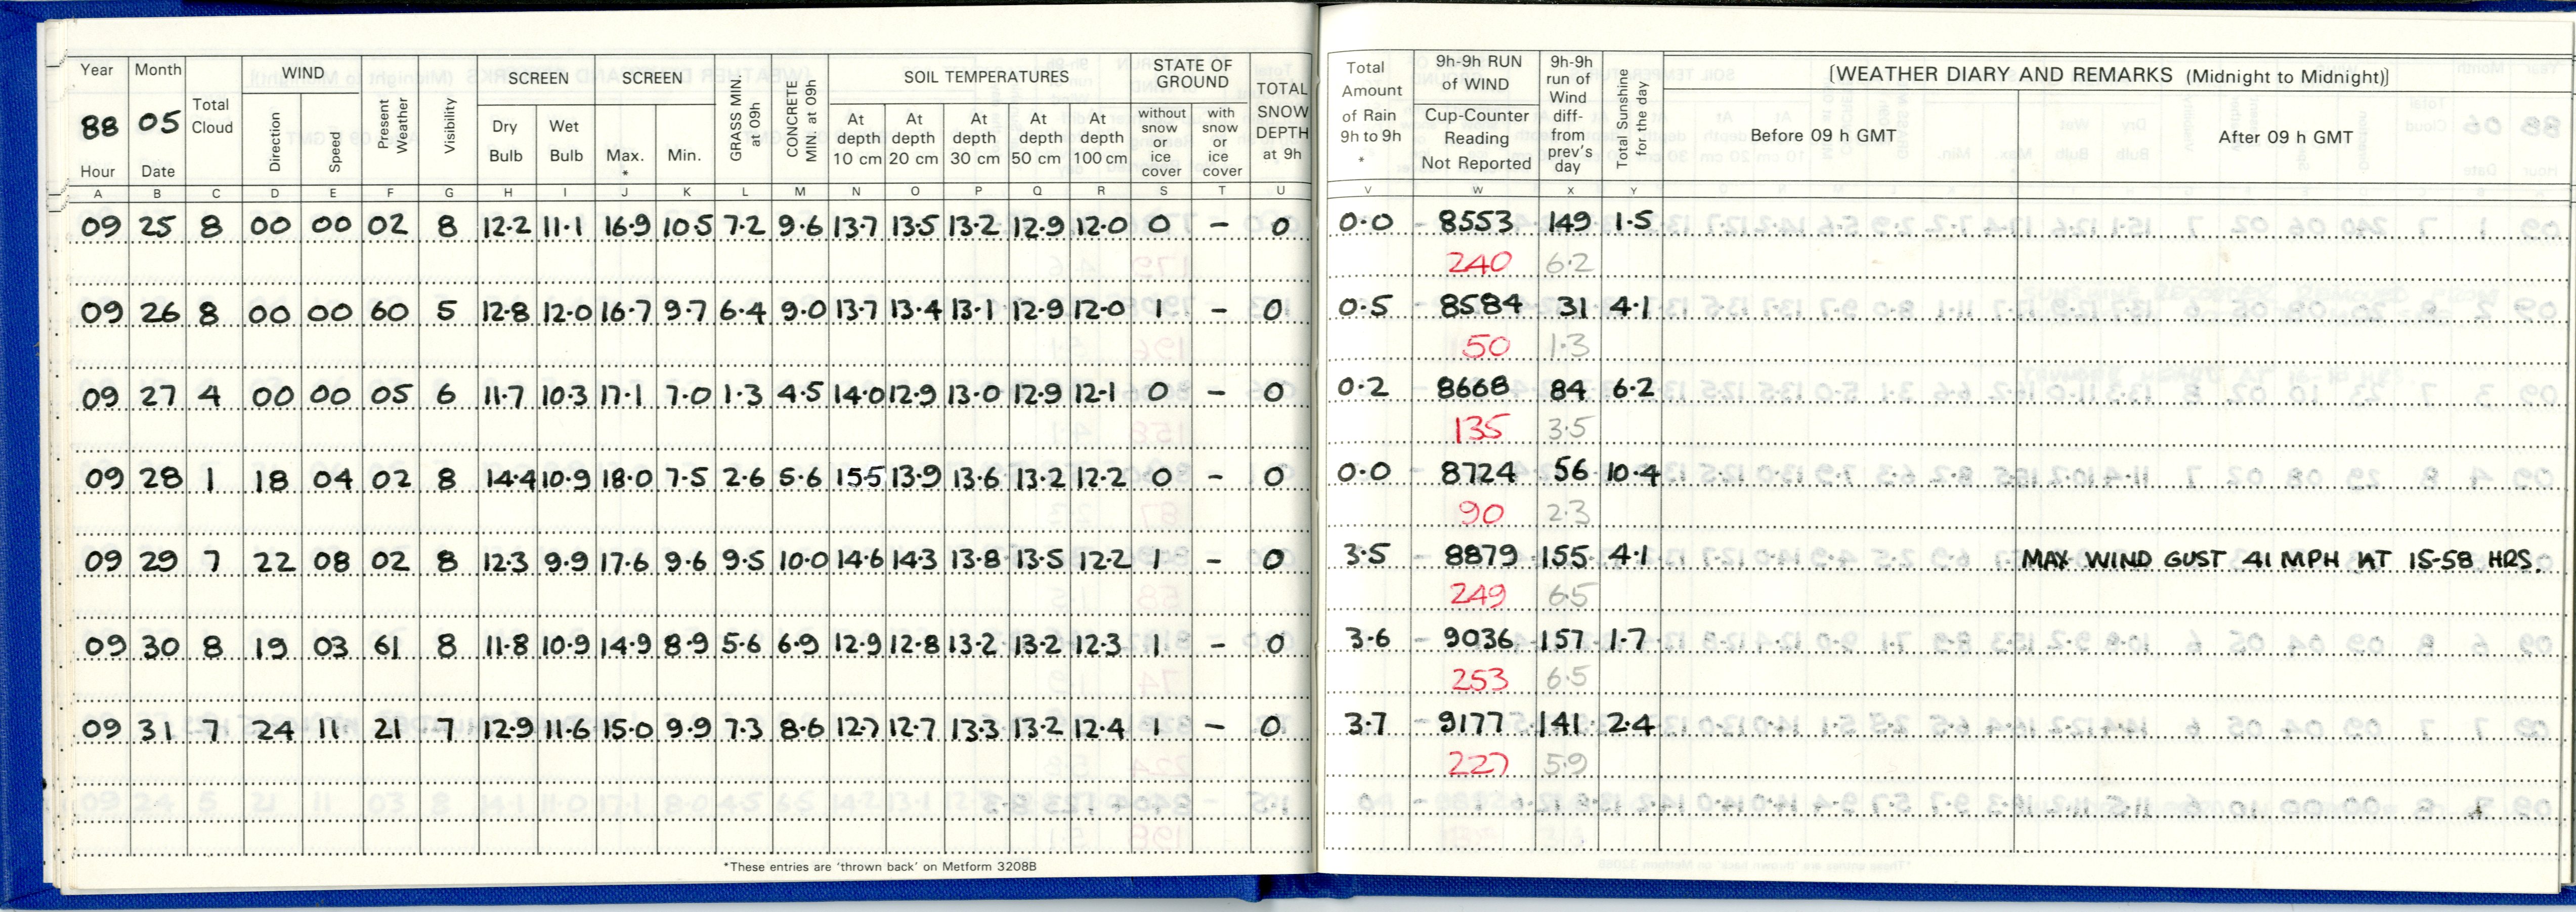 Year Month Total Cloud WIND Present Weather Visibility SCREEN SCREEN GRASS MIN. at 09h CONCRETE MIN at 09h SOIL TEMPERATURES STATE OF GROUND TOTAL SNOW DEPTH at 9h Total Amount of Rain 9h to 9h * 9h-9h RUN of WIND 9h-9h run of Wind diff- from prev's day Total Sunshine for the day [WEATHER DIARY AND REMARKS (Midnight to Midnight)]
88 05 Direction Speed Dry Bulb Wet Bulb Max. * Min. At depth 10 cm At depth 20 cm At depth 30 cm At depth 50 cm At depth 100 cm without snow or ice cover with snow or ice cover Cup-Counter Reading Not Reported Before 09 h GMT After 09 h GMT
Hour Date
A B C D E F G H I J K L M N O P Q R S T U V W X Y
09 25 8 00 00 02 8 12.2 11.1 16.9 10.5 7.2 9.6 13.7 13.5 13.2 12.9 12.0 0 - 0 0.0 8553 149 1.5
240 6.2
09 26 8 00 00 60 5 12.8 12.0 16.7 9.7 6.4 9.0 13.7 13.4 13.1 12.9 12.0 1 - 0 0.5 8584 31 4.1
50 1.3
09 27 4 00 00 05 6 11.7 10.3 17.1 7.0 1.3 4.5 14.0 12.9 13.0 12.9 12.1 0 - 0 0.2 8668 84 6.2
135 3.5
09 28 1 18 04 02 8 14.4 10.9 18.0 7.5 2.6 5.6 15.5 13.9 13.6 13.2 12.2 0 - 0 0.0 8724 56 10.4
90 2.3
09 29 7 22 08 02 8 12.3 9.9 17.6 9.6 9.5 10.0 14.6 14.3 13.8 13.5 12.2 1 - 0 3.5 8879 155 4.1 MAX WIND GUST 41 MPH AT 15-58 HRS.
249 6.5
09 30 8 19 03 61 8 11.8 10.9 14.9 8.9 5.6 6.9 12.9 12.8 13.2 13.2 12.3 1 - 0 3.6 9036 157 1.7
253 6.5
09 31 7 24 11 21 7 12.9 11.6 15.0 9.9 7.3 8.6 12.7 12.7 13.3 13.2 12.4 1 - 0 3.7 9177 141 2.4
227 5.9
*These entries are 'thrown back' on Metform 3208B